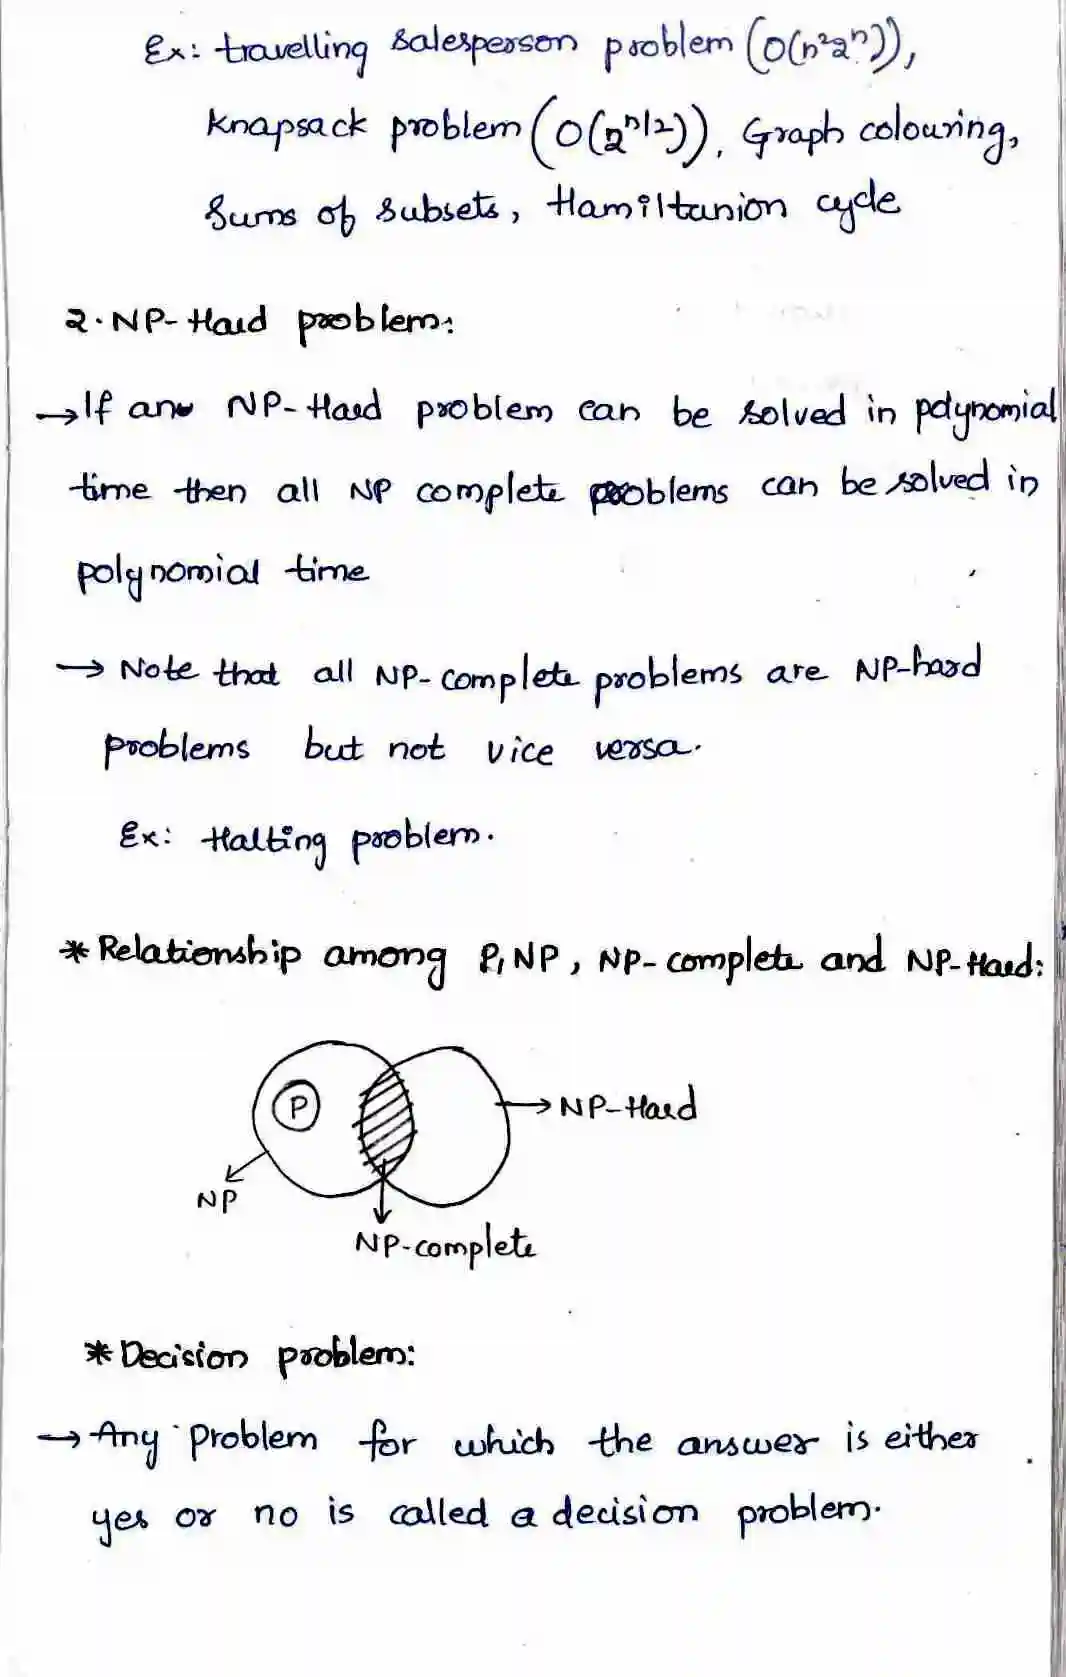 Ex: travelling salesperson problem (O(n²2ⁿ)),
Knapsack problem (O(2^n/2)), Graph colouring,
Sums of subsets, Hamiltanion cycle
2. NP-Hard problem:
→ If any NP-Hard problem can be solved in polynomial
time then all NP complete problems can be solved in
polynomial time
→ Note that all NP-complete problems are NP-hard
problems but not vice versa.
Ex: Halting problem.
* Relationship among P, NP, NP-complete and NP-Hard:
P
→ NP-Hard
NP
NP-complete
* Decision problem:
→ Any problem for which the answer is either
yes or no is called a decision problem.